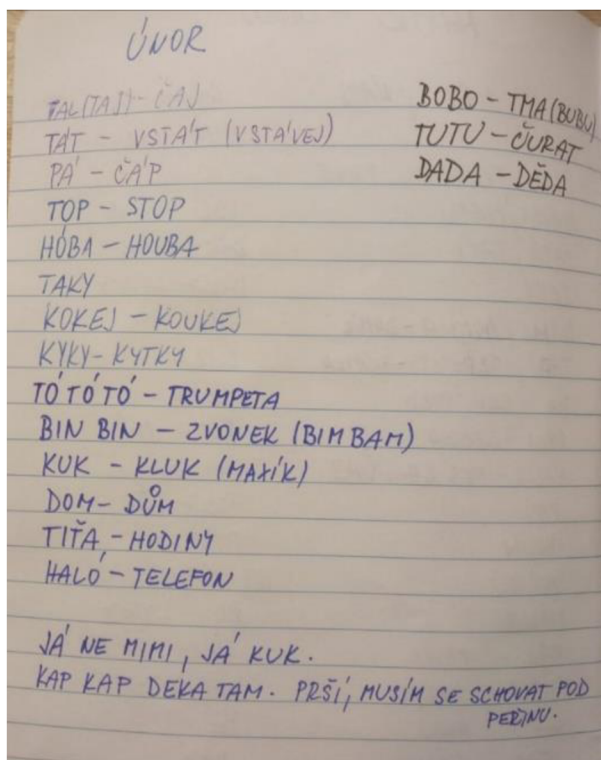 ÚNOR
TAL(TAJ) - ČAJ
TÁT - VSTÁT (VSTÁVEJ)
PÁ - ČÁP
TOP - STOP
HÓBA - HOUBA
TAKY
KOKEJ - KOUKEJ
KYKY - KYTKY
TÓ TÓ TÓ - TRUMPETA
BIN BIN - ZVONEK (BIM BAM)
KUK - KLUK (MAXÍK)
DOM - DŮM
TIŤA - HODINY
HALÓ - TELEFON
BOBO - TMA (BUBU)
TUTU - ČURAT
DADA - DĚDA
JÁ NE MIMI, JÁ KUK.
KAP KAP DEKA TAM. PRŠÍ, MUSÍM SE SCHOVAT POD
PEŘINU.